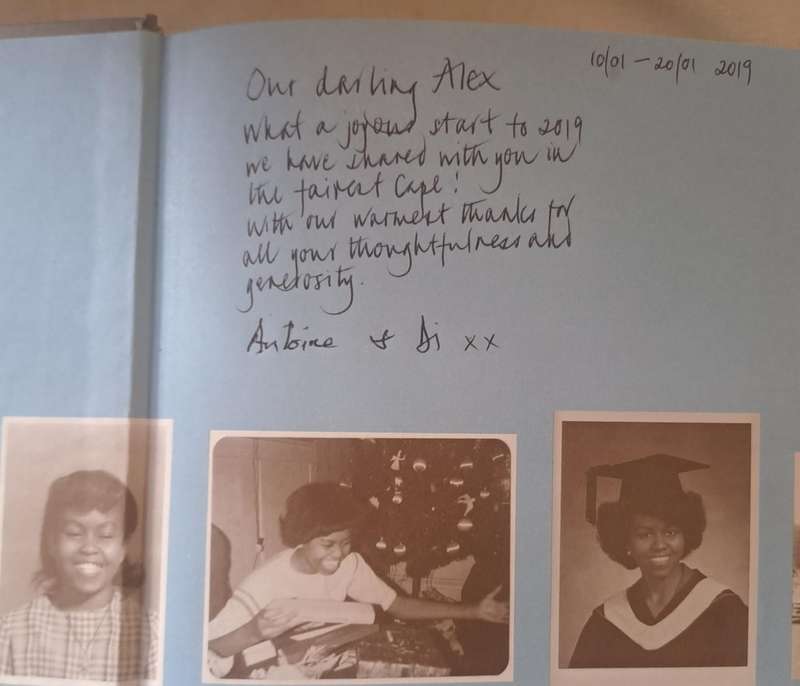 10/01 - 20/01 2019
Our darling Alex
What a joyous start to 2019
we have shared with you in
the fairest Cape!
With our warmest thanks for
all your thoughtfulness and
generosity.
Antoine & Di xx